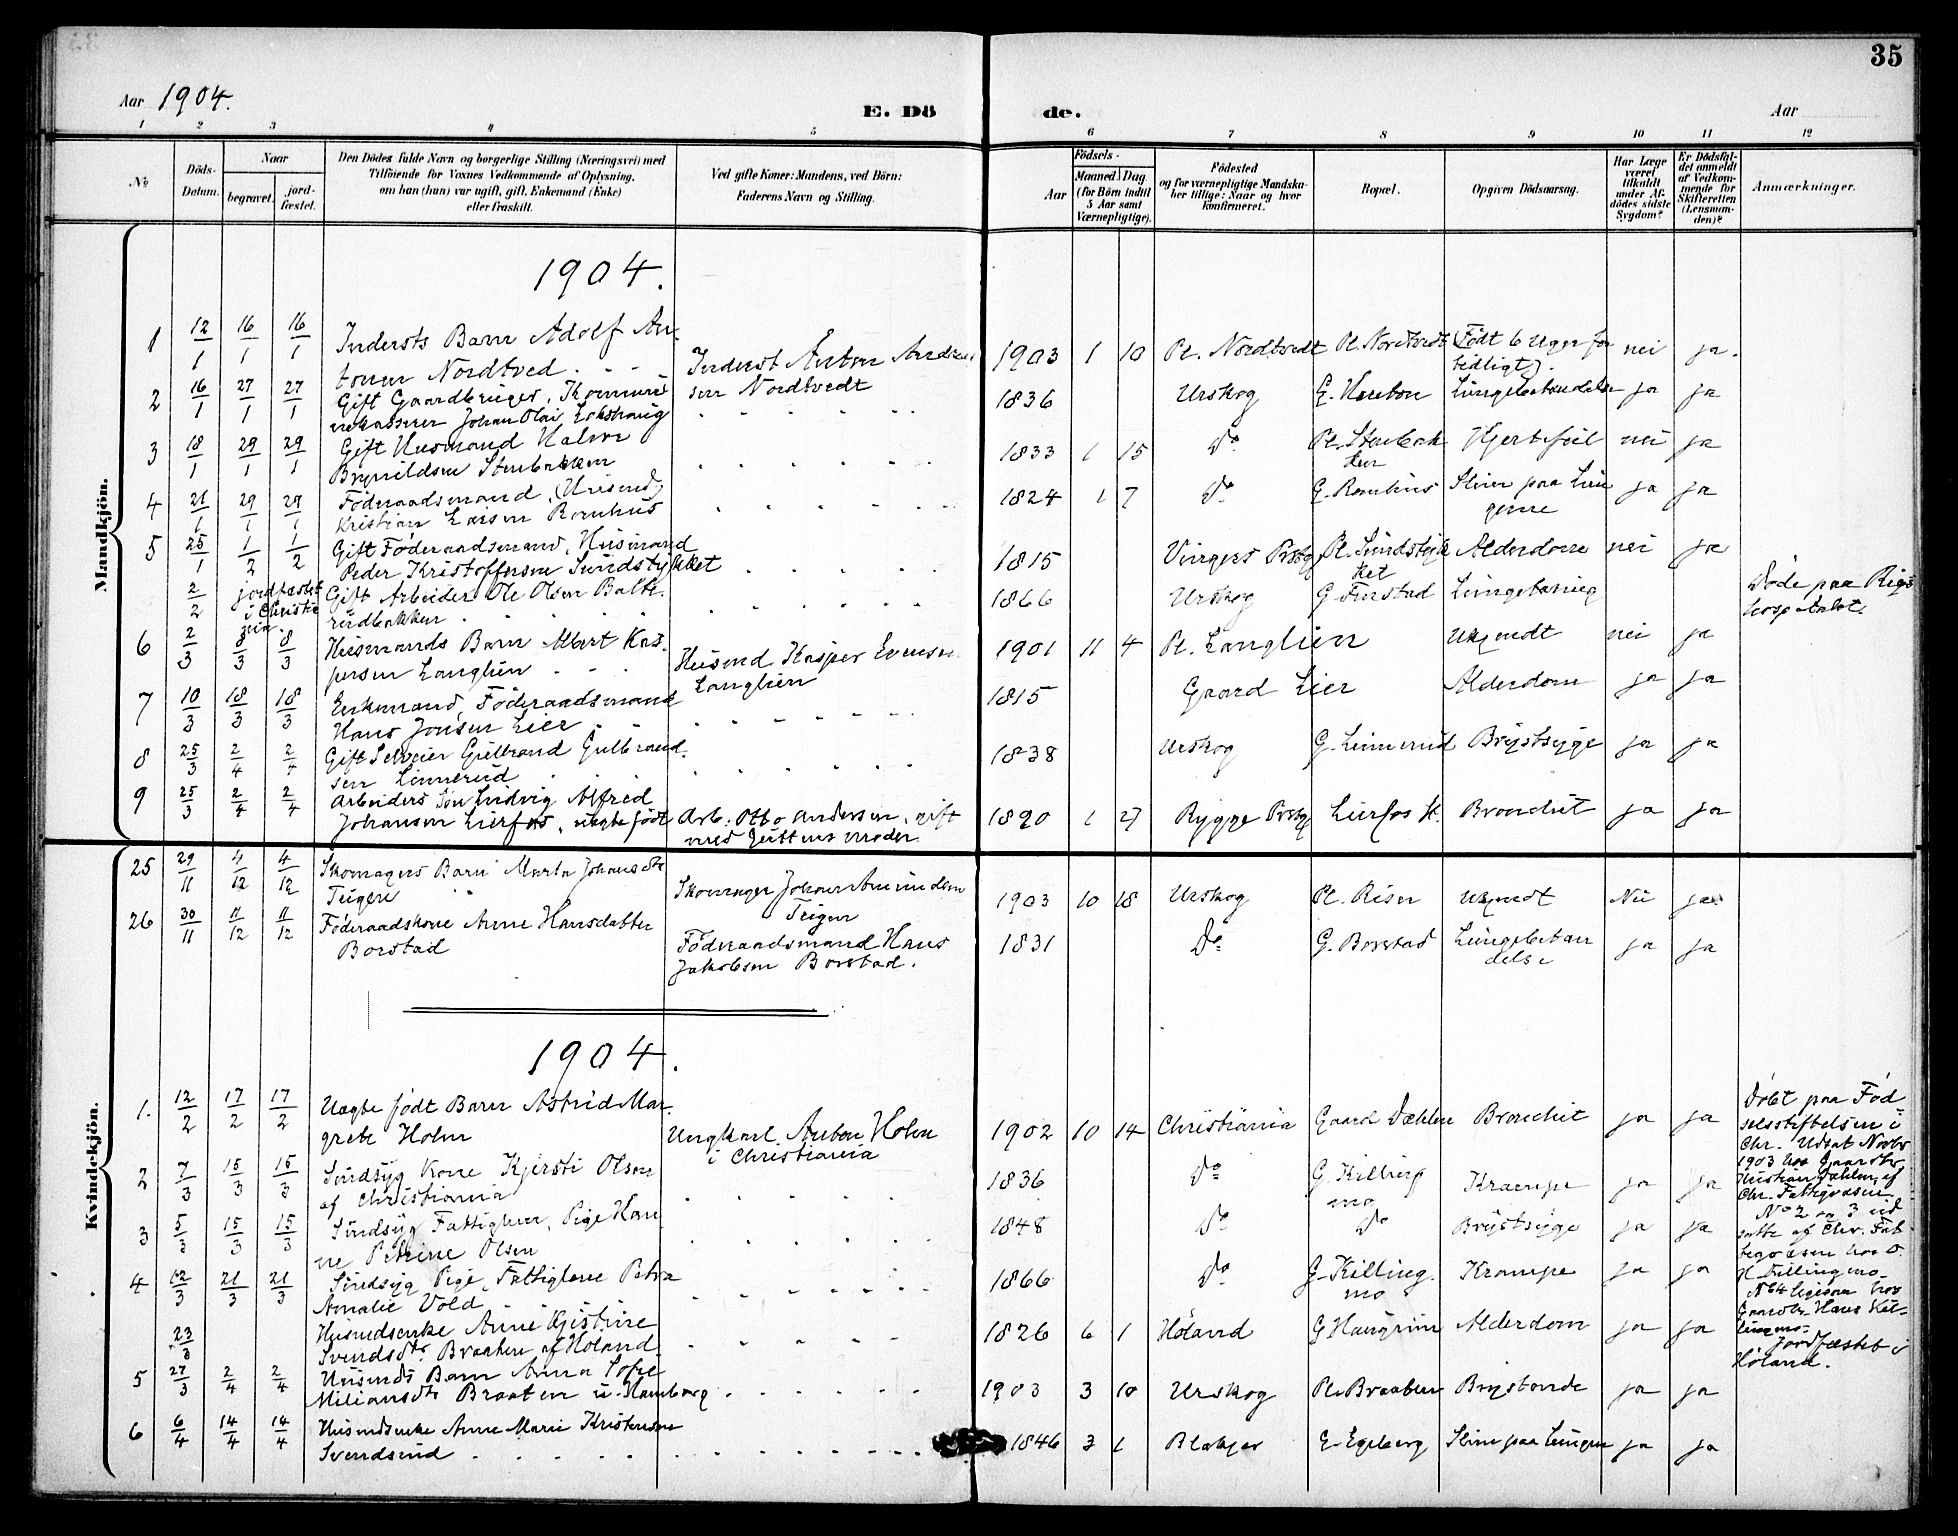 35
Aar 1904.
E. Dö de.
Aar
1 2 3 4 5 6 7 8 9 10 11 12
No
Döds-Datum.
Naar
begravet.
jord-fæstet.
Den Dödes fulde Navn og borgerlige Stilling (Næringsvei) med
Tilföiende for Voxnes Vedkommende af Oplysning,
om han (hun) var ugift, gift, Enkemand (Enke)
eller fraskilt.
Ved gifte Koner: Mandens, ved Börn:
Faderens Navn og Stilling.
Födsels-
Aar
Maaned. Dag.
(for Börn indtil
5 Aar samt
Værnepligtige).
Födested
og for værnepligtige Mandska-
ber tillige: Naar og hvor
konfirmeret.
Bopæl.
Opgiven Dödsaarsag.
Har Læge
været
tilkaldt
under Af-
dödes sidste
Sygdom?
Er Dödsfal-
det anmeldt
af Vedkom-
mende for
Skifteretten
(Lensman-
den)?
Anmærkninger.
Mandkjön.
1904.
1 12/1 16/1 16/1 Indersts Barn Adolf An-
tonsen Nordtved Inderst Anton Andrea-
sen Nordtvedt 1903 1 10 Pl. Nordtvedt Pl. Nordtvedt (Født 6 Uger for
tidligt). nei ja.
2 16/1 27/1 27/1 Gift Gaardbruger, Kommu-
nekasserer Johan Olai 1836 Urskog G. Lungebetændelse ja ja
3 18/1 29/1 29/1 Gift Husmand Halvor
Brynildsen Stenbakken 1833 1 15 Do Pl. Stenbak-
ken Hjertefeil nei ja
4 21/1 29/1 29/1 Föderaadsmand,
Kristian Larsen Romhus 1824 1 7 Do G. Romhus Sliim paa Lun-
gerne ja ja
5 25/1 1/2 1/2 Gift Föderaadsmand, Husmand
Peder Kristoffersen Sundstykket 1815 Vingers Prstg. Pl. Sundstyk-
ket Alderdom nei ja
2/2 jordfæstet
i Christia-
nia. Gift Arbeider Ole Olsen Balte-
rudbakken 1866 Urskog G. Finstad Døde paa Rigs-
hospitalet.
6 2/3 8/3 8/3 Husmands Barn Albert Kas-
persen Langlien Husmd Kasper Evensen
Langlien 1901 11 4 Pl. Langlien Ukjendt nei ja
7 10/3 18/3 18/3 Enkemand, Föderaadsmand
Hans Jonsen Lier 1815 Gaard Lier Alderdom ja ja
8 25/3 2/4 2/4 Gift Selveier Gulbrand Gulbrand-
sen Linnerud 1838 Urskog G. Linnerud Brystsyge ja ja
9 25/3 2/4 2/4 Arbeiders Søn Ludvig Alfred
Johansen Lierfos, uægte født Arb. Otto Andersen, gift
med Guttens moder 1890 1 27 Rygge Prstg Lierfos Bronchit ja ja
Kvindekjön.
25 29/11 4/12 4/12 Skomagers Barn Marta Johansdtr
Teigen Skomager Johan Amundsen
Teigen 1903 10 18 Urskog Pl. Riser Ukjendt Nei ja
26 30/11 11/12 11/12 Föderaadskone Anne Hansdatter
Borstad Föderaadsmand Hans
Jakobsen Borstad. 1831 Do G. Borstad Lungebetæn-
delse ja ja
1904.
1. 12/2 17/2 17/2 Uægte født Barn Astrid Mar-
grete Holm Ungkarl Anton Holm
i Christiania 1902 10 14 Christiania Gaard Dæhlen Bronchit ja ja Døbt paa Fød-
selsstiftelsen i
Chr. Udsat Novbr
1903 hos Gaardbr.
Kristian Dæhlen, af
Chr. Fattigvæsen
2 7/3 15/3 15/3 Sindsyg Kone Kjersti Olsen
af Christiania 1836 Do G. Killing-
mo Krampe ja ja
3 5/3 15/3 15/3 Sindsyg Fattiglem, Pige Han-
ne Petrine Olsen 1848 Do Do Brystsyge ja ja No 2 og 3 ud-
satte af Chr. Fat-
tigvæsen hos O.
H. Killingmo
4 12/3 21/3 21/3 Sindsyg Pige, Fattiglem Petra
Amalie Vold 1866 Do G. Killing-
mo Krampe ja ja No 4 ligesaa hos
Gaardbr. Hans Kil-
lingmo.
23/3 Husmdsenke Anne Kjistine
Svendsdtr. Braaten af Höland 1826 6 1 Höland G Alderdom ja ja Jordfæstet i
Höland.
5 27/3 2/4 2/4 Husmds Barn Anna Sofie
Miliansdtr Braaten u. Hamborg 1903 3 10 Urskog Pl. Braaten ja ja
6 6/4 14/4 14/4 Husmdsenke Anne Marie Kristensen
Svendsrud 1846 3 1 Blakjer G. Egeberg Sliim paa Lungen ja ja